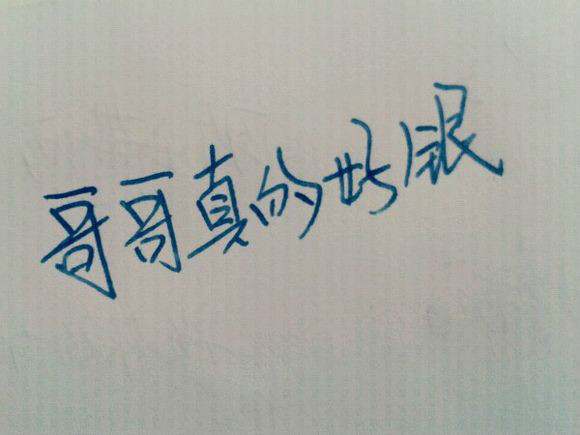 哥哥真的好银